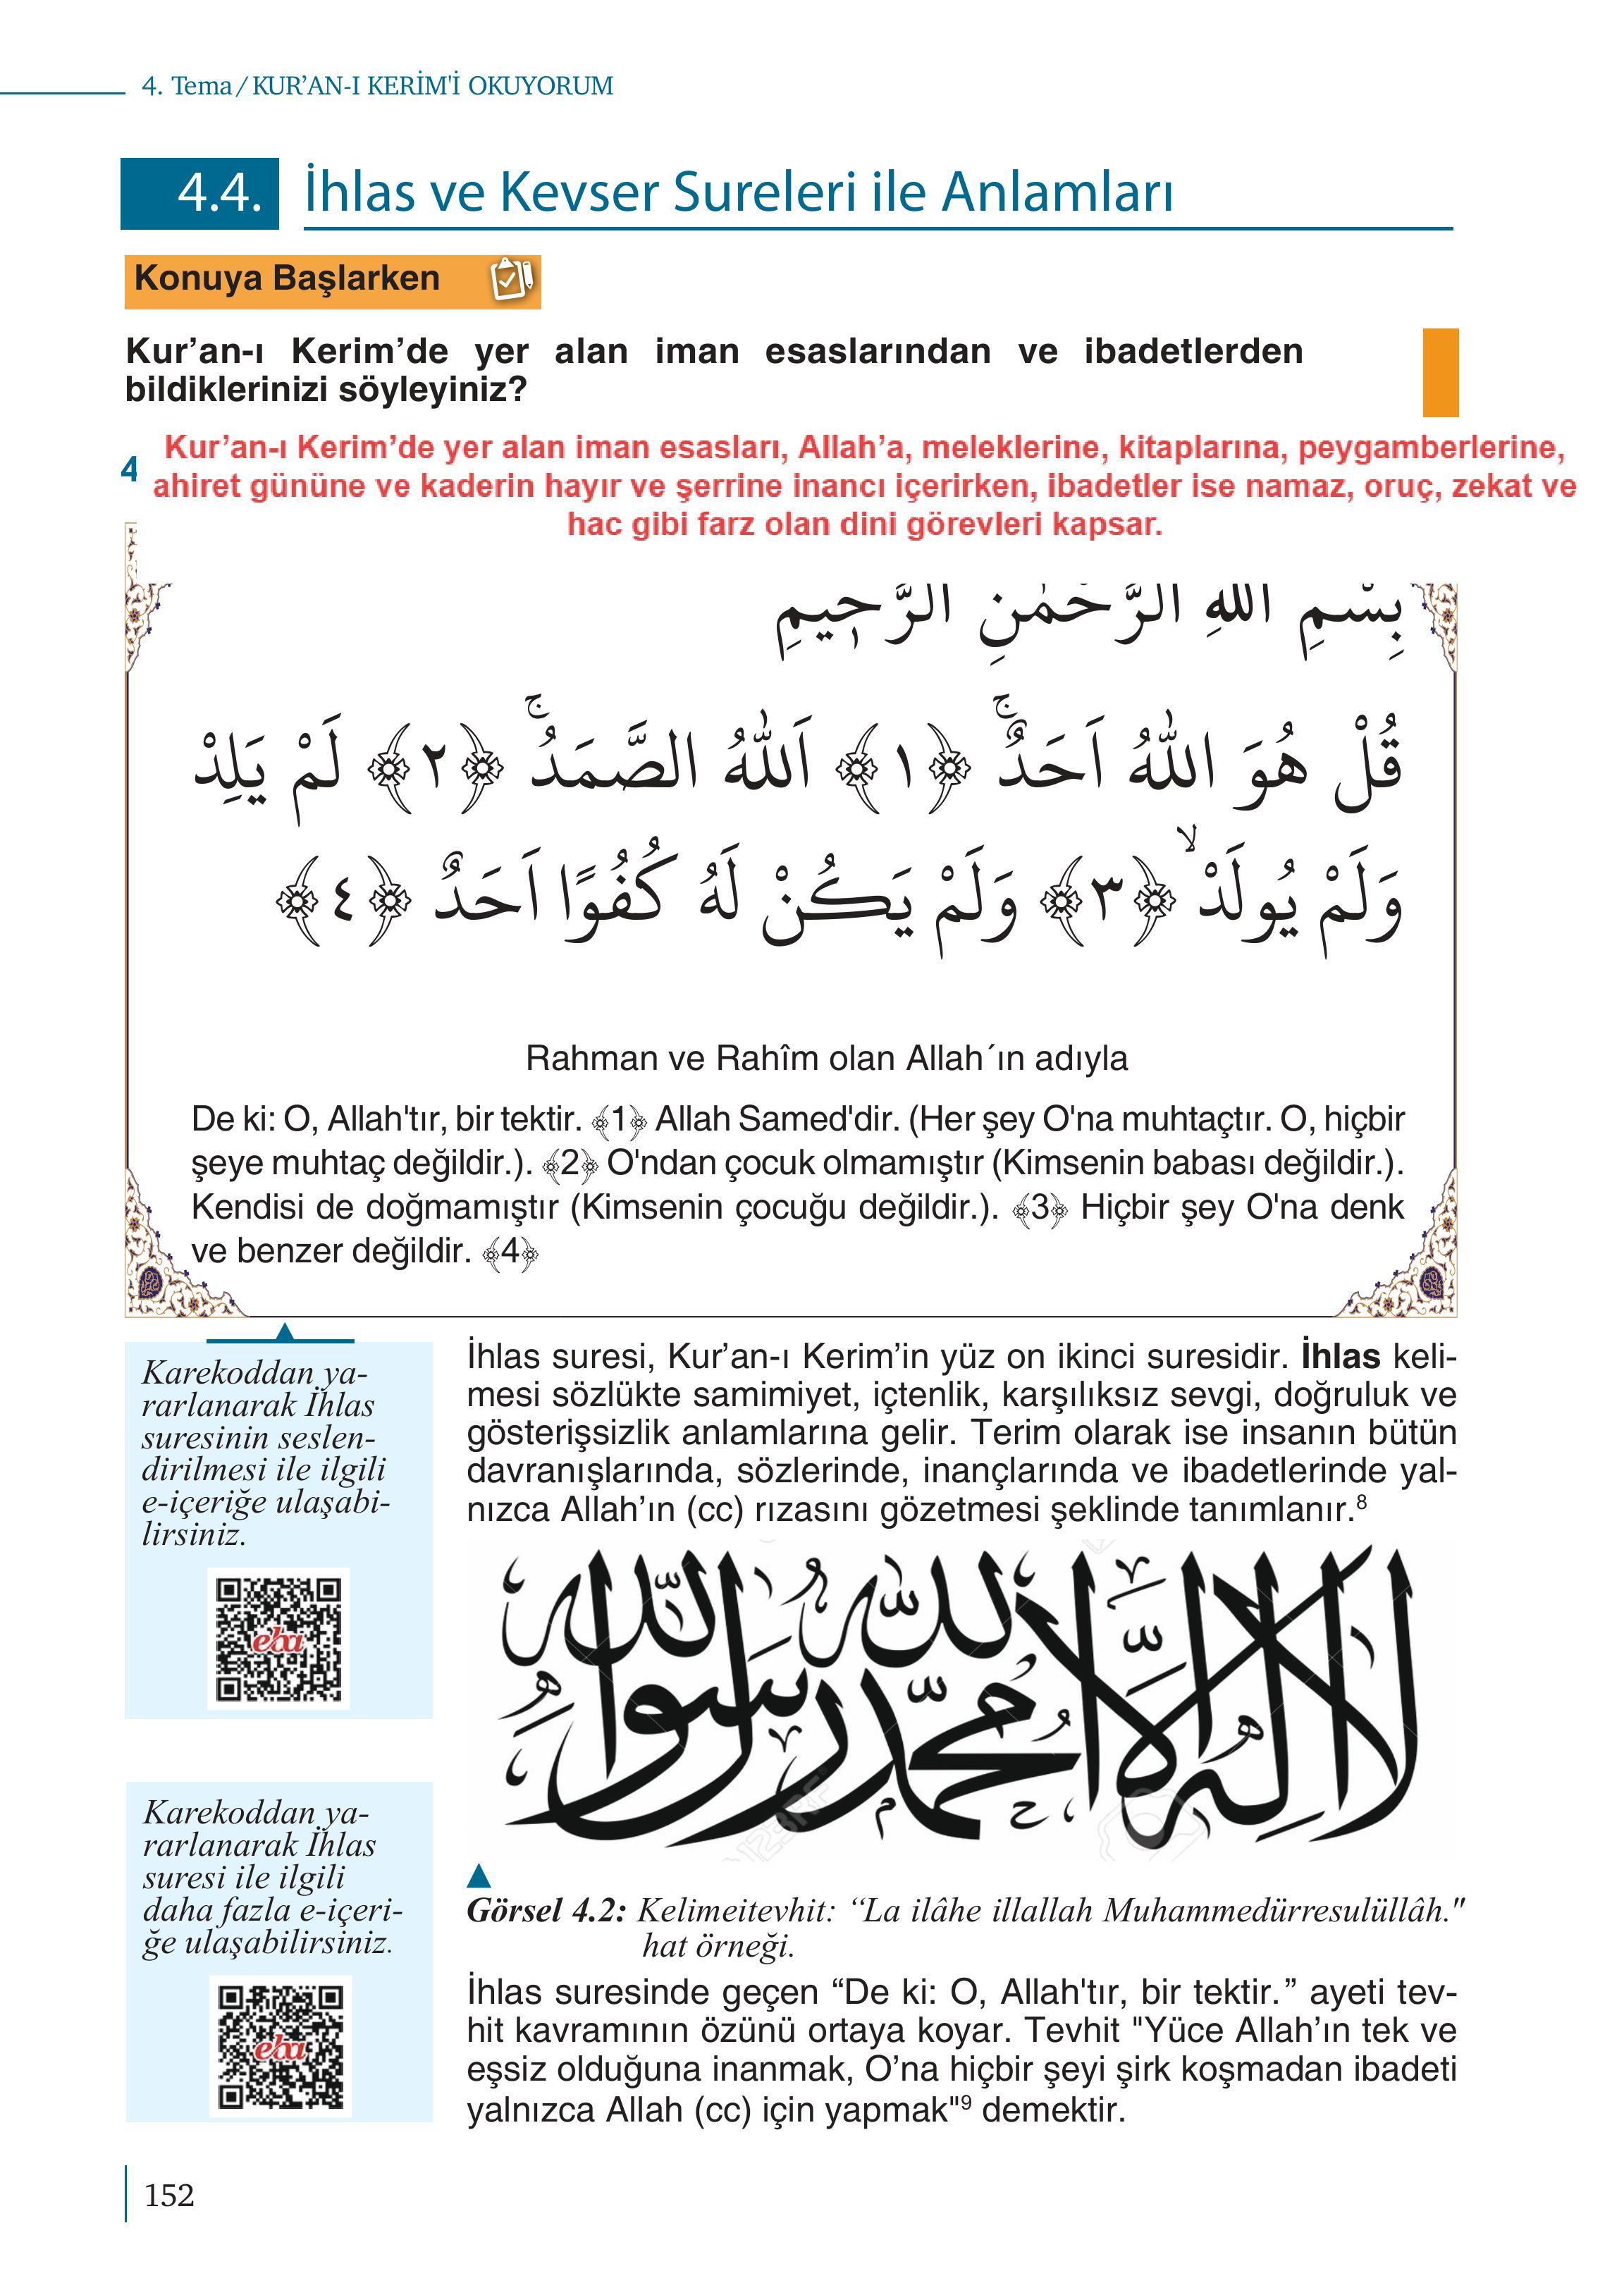 4. Tema/KUR’AN-I KERİM'İ OKUYORUM
4.4. İhlas ve Kevser Sureleri ile Anlamları
Konuya Başlarken
Kur’an-ı Kerim’de yer alan iman esaslarından ve ibadetlerden
bildiklerinizi söyleyiniz?
Kur’an-ı Kerim’de yer alan iman esasları, Allah’a, meleklerine, kitaplarına, peygamberlerine,
4 ahiret gününe ve kaderin hayır ve şerrine inancı içerirken, ibadetler ise namaz, oruç, zekat ve
hac gibi farz olan dini görevleri kapsar.
بِسْمِ اللهِ الرَّحْمٰنِ الرَّحٖيمِ
قُلْ هُوَ اللّٰهُ اَحَدٌۚ ﴿١﴾ اَللّٰهُ الصَّمَدُۚ ﴿٢﴾ لَمْ يَلِدْ
وَلَمْ يُولَدْۙ ﴿٣﴾ وَلَمْ يَكُنْ لَهُ كُفُوًا اَحَدٌ ﴿٤﴾
Rahman ve Rahîm olan Allah´ın adıyla
De ki: O, Allah'tır, bir tektir. ﴾1﴿ Allah Samed'dir. (Her şey O'na muhtaçtır. O, hiçbir
şeye muhtaç değildir.). ﴾2﴿ O'ndan çocuk olmamıştır (Kimsenin babası değildir.).
Kendisi de doğmamıştır (Kimsenin çocuğu değildir.). ﴾3﴿ Hiçbir şey O'na denk
ve benzer değildir. ﴾4﴿
Karekoddan ya-
rarlanarak İhlas
suresinin seslen-
dirilmesi ile ilgili
e-içeriğe ulaşabi-
lirsiniz.
eba
Karekoddan ya-
rarlanarak İhlas
suresi ile ilgili
daha fazla e-içeri-
ğe ulaşabilirsiniz.
eba
İhlas suresi, Kur’an-ı Kerim’in yüz on ikinci suresidir. İhlas keli-
mesi sözlükte samimiyet, içtenlik, karşılıksız sevgi, doğruluk ve
gösterişsizlik anlamlarına gelir. Terim olarak ise insanın bütün
davranışlarında, sözlerinde, inançlarında ve ibadetlerinde yal-
nızca Allah’ın (cc) rızasını gözetmesi şeklinde tanımlanır.⁸
لا اله الا الله محمد رسول الله
123RF
Görsel 4.2: Kelimeitevhit: “La ilâhe illallah Muhammedürresulüllâh."
hat örneği.
İhlas suresinde geçen “De ki: O, Allah'tır, bir tektir.” ayeti tev-
hit kavramının özünü ortaya koyar. Tevhit "Yüce Allah’ın tek ve
eşsiz olduğuna inanmak, O’na hiçbir şeyi şirk koşmadan ibadeti
yalnızca Allah (cc) için yapmak"⁹ demektir.
152